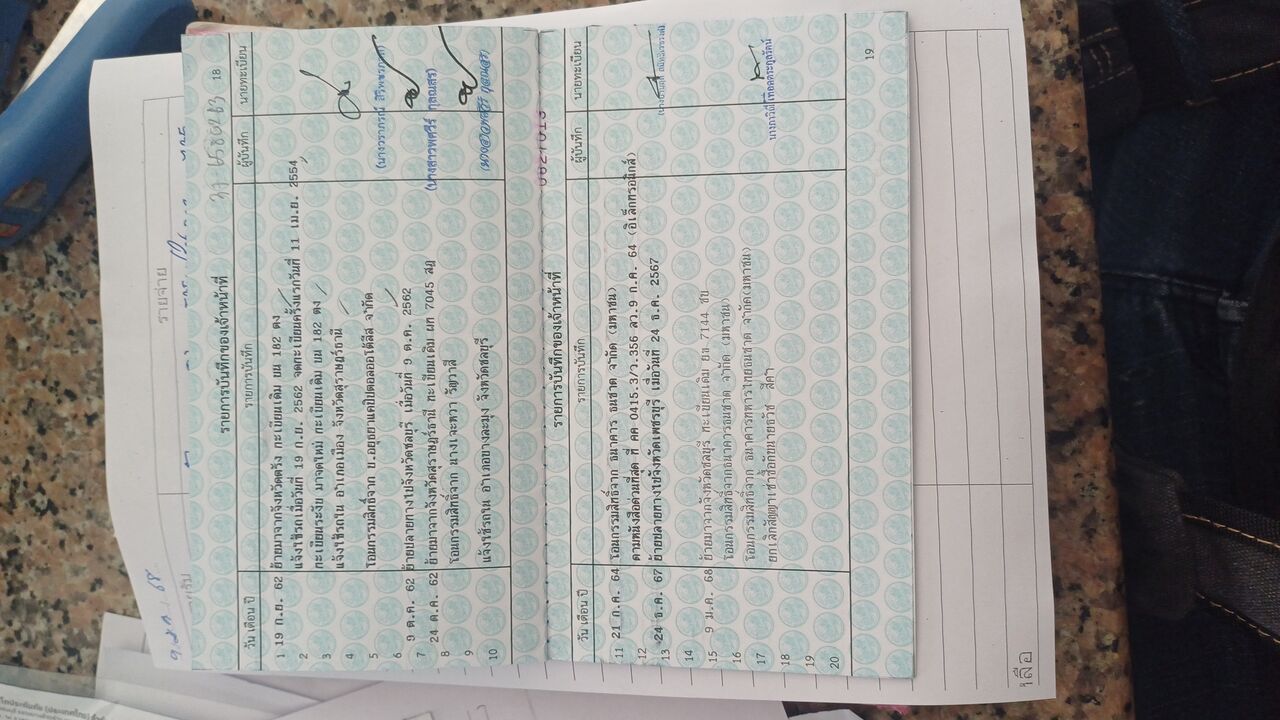 รายการบันทึกของเจ้าหน้าที่ 18
วัน เดือน ปี รายการบันทึก ผู้บันทึก นายทะเบียน
1 19 ก.ย. 62 ย้ายมาจากจังหวัดตรัง ทะเบียนเดิม ขน 182 ตง
2 แจ้งใช้รถเมื่อวันที่ 19 ก.ย. 2562 จดทะเบียนครั้งแรกวันที่ 11 เม.ย. 2554
3 ทะเบียนระงับ มาจดใหม่ ทะเบียนเดิม ขน 182 ตง
4 แจ้งใช้รถใน อำเภอเมือง จังหวัดสุราษฎร์ธานี
5 โอนกรรมสิทธิ์จาก บ.อยุธยาแคปปิตอลออโต้ลีส จำกัด
(นางวราภรณ์
6 9 ต.ค. 62 ย้ายปลายทางไปจังหวัดชลบุรี เมื่อวันที่ 9 ต.ค. 2562
7 24 ต.ค. 62 ย้ายมาจากจังหวัดสุราษฎร์ธานี ทะเบียนเดิม ผก 7045 สฎ
(นางสาวพศวีร์ กุลณสร)
8 โอนกรรมสิทธิ์จาก
9
10 แจ้งใช้รถใน อำเภอบางละมุง จังหวัดชลบุรี
รายการบันทึกของเจ้าหน้าที่
วัน เดือน ปี รายการบันทึก ผู้บันทึก นายทะเบียน
11 21 ก.ค. 64 โอนกรรมสิทธิ์จาก ธนาคาร ธนชาต จำกัด (มหาชน)
12 ตามหนังสือด่วนที่สุด ที่ คค 0415.3/ว.356 ลว.9 ก.ค. 64 (อิเล็กทรอนิกส์)
13 24 ธ.ค. 67 ย้ายปลายทางไปจังหวัดเพชรบุรี เมื่อวันที่ 24 ธ.ค. 2567
14
15 9 ม.ค. 68 ย้ายมาจากจังหวัดชลบุรี ทะเบียนเดิม ยข 7144 ชบ
16 โอนกรรมสิทธิ์จากธนาคารธนชาต จำกัด (มหาชน)
17 โอนกรรมสิทธิ์จาก ธนาคารทหารไทยธนชาต จำกัด(มหาชน)
18 ยกเลิกสัญญาเช่าซื้อกับนายธวัช
19
20
19
รายจ่าย
เหลือ